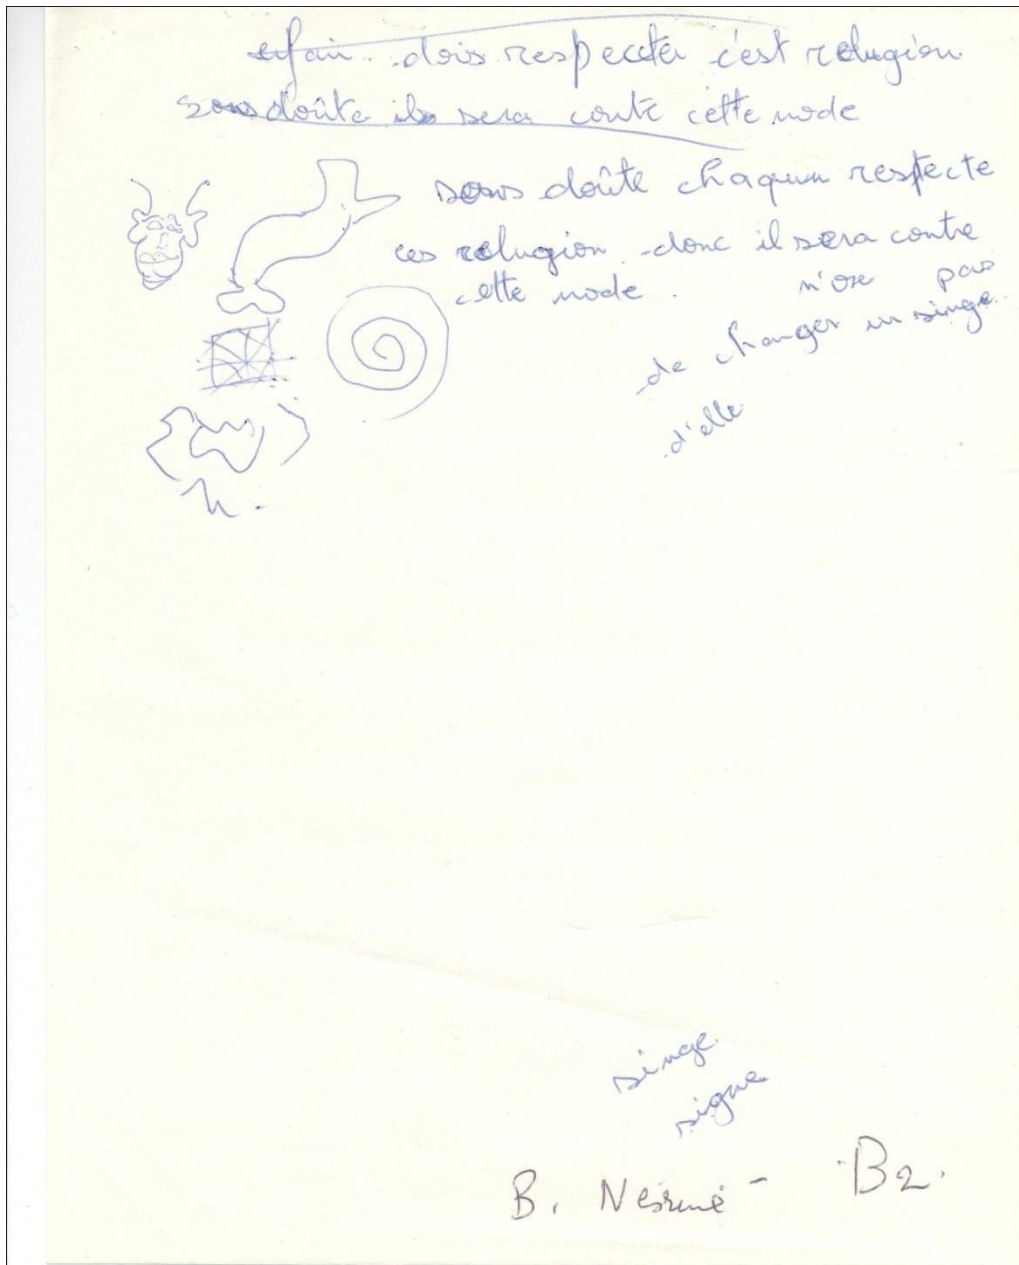 enfain dois respecter c'est relugion
sous doûte ils sera conte cette mode
sous doûte chaquun respecte
ces relugion donc il sera contre
cette mode.
n'ose pas
de changer un singe
d'elle
singe
signe
B. Nesrine - B2.